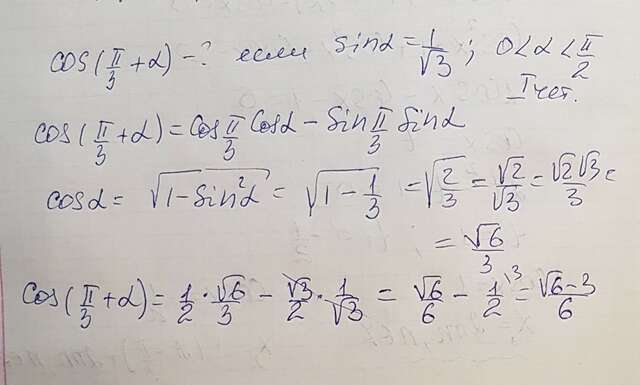 cos(π/3 + α) - ? если sinα = 1/√3 ; 0 < α < π/2
I чет.
cos(π/3 + α) = cos π/3 cosα - sin π/3 sinα
cosα = √(1 - sin²α) = √(1 - 1/3) = √(2/3) = √2/√3 = √2√3/3 =
= √6/3
cos(π/3 + α) = 1/2 · √6/3 - √3/2 · 1/√3 = √6/6 - 1/2 \3 = √6-3/6